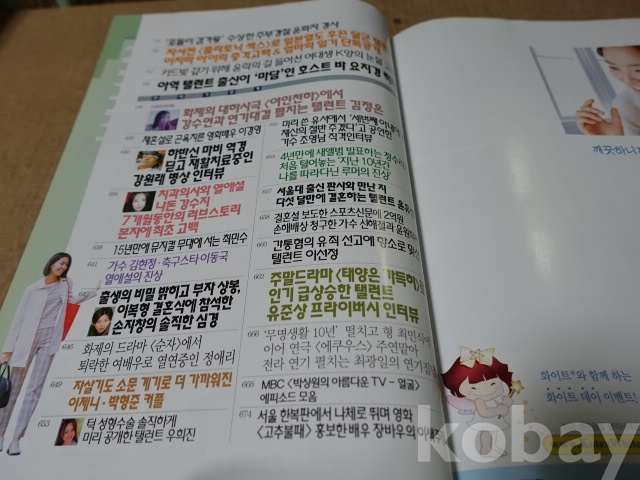 "포돌이 감격왕" 수상한 주부경찰 윤희자 경사
자서전 <플라토닉 섹스>로 일본열도 후끈 달군
이지마 아이의 충격고백 & 엄마의 일기 단독공개
카드빚 갚기 위해 윤락의 길 들어선 여대생 K양의 눈물
아역 탤런트 출신이 '마담'인 호스트 바 요지경
화제의 대하사극 <여인천하>에서
강수연과 연기대결 펼치는 탤런트 김정은
재혼설로 곤욕치른 영화배우 이경영
하반신 마비 역경
딛고 재활치료중인
강원래 병상 인터뷰
634
치과의사와 열애설
나돈 강수지
7개월동안의 러브스토리
본지에 최초 고백
638
15년만에 뮤지컬 무대에 서는 최민수
640
가수 김현정·축구스타 이동국
열애설의 진상
642
출생의 비밀 밝히고 부자 상봉,
이복형 결혼식에 참석한
손지창의 솔직한 심경
646
화제의 드라마 <순자>에서
퇴락한 여배우로 열연중인 정애리
649
자살기도 소문 계기로 더 가까워진
이제니·박형준 커플
653
턱 성형수술 솔직하게
미리 공개한 탤런트 우희진
미리 쓴 유서에서 '세번째 아내에게
재산의 절반 주겠다'고 공언한
가수 조영남 직격인터뷰
4년만에 새앨범 발표하는 정수라
처음 털어놓는 '지난 10년간
나를 따라다닌 루머의 진상'
서울대 출신 판사와 만난 지
다섯 달만에 결혼하는 탤런트
658
결혼설 보도한 스포츠신문에 2억원
손해배상 청구한 가수 신해철과
660
간통혐의 유죄 선고에 항소로 맞
탤런트 이선정
662
주말드라마 <태양은 가득히>로
인기 급상승한 탤런트
유준상 프라이버시 인터뷰
666
'무명생활 10년' 떨치고 형 최민식
이어 연극 <에쿠우스> 주연맡아
전라 연기 펼치는 최광일의 연기
668
MBC <박상원의 아름다운 TV - 얼굴>
에피소드 모음
674
서울 한복판에서 나체로 뛰며 영화
<고추불패> 홍보한 배우 장바우의
깨끗하니까
화이트와 함께 하는
화이트 데이 이벤트!
kobay